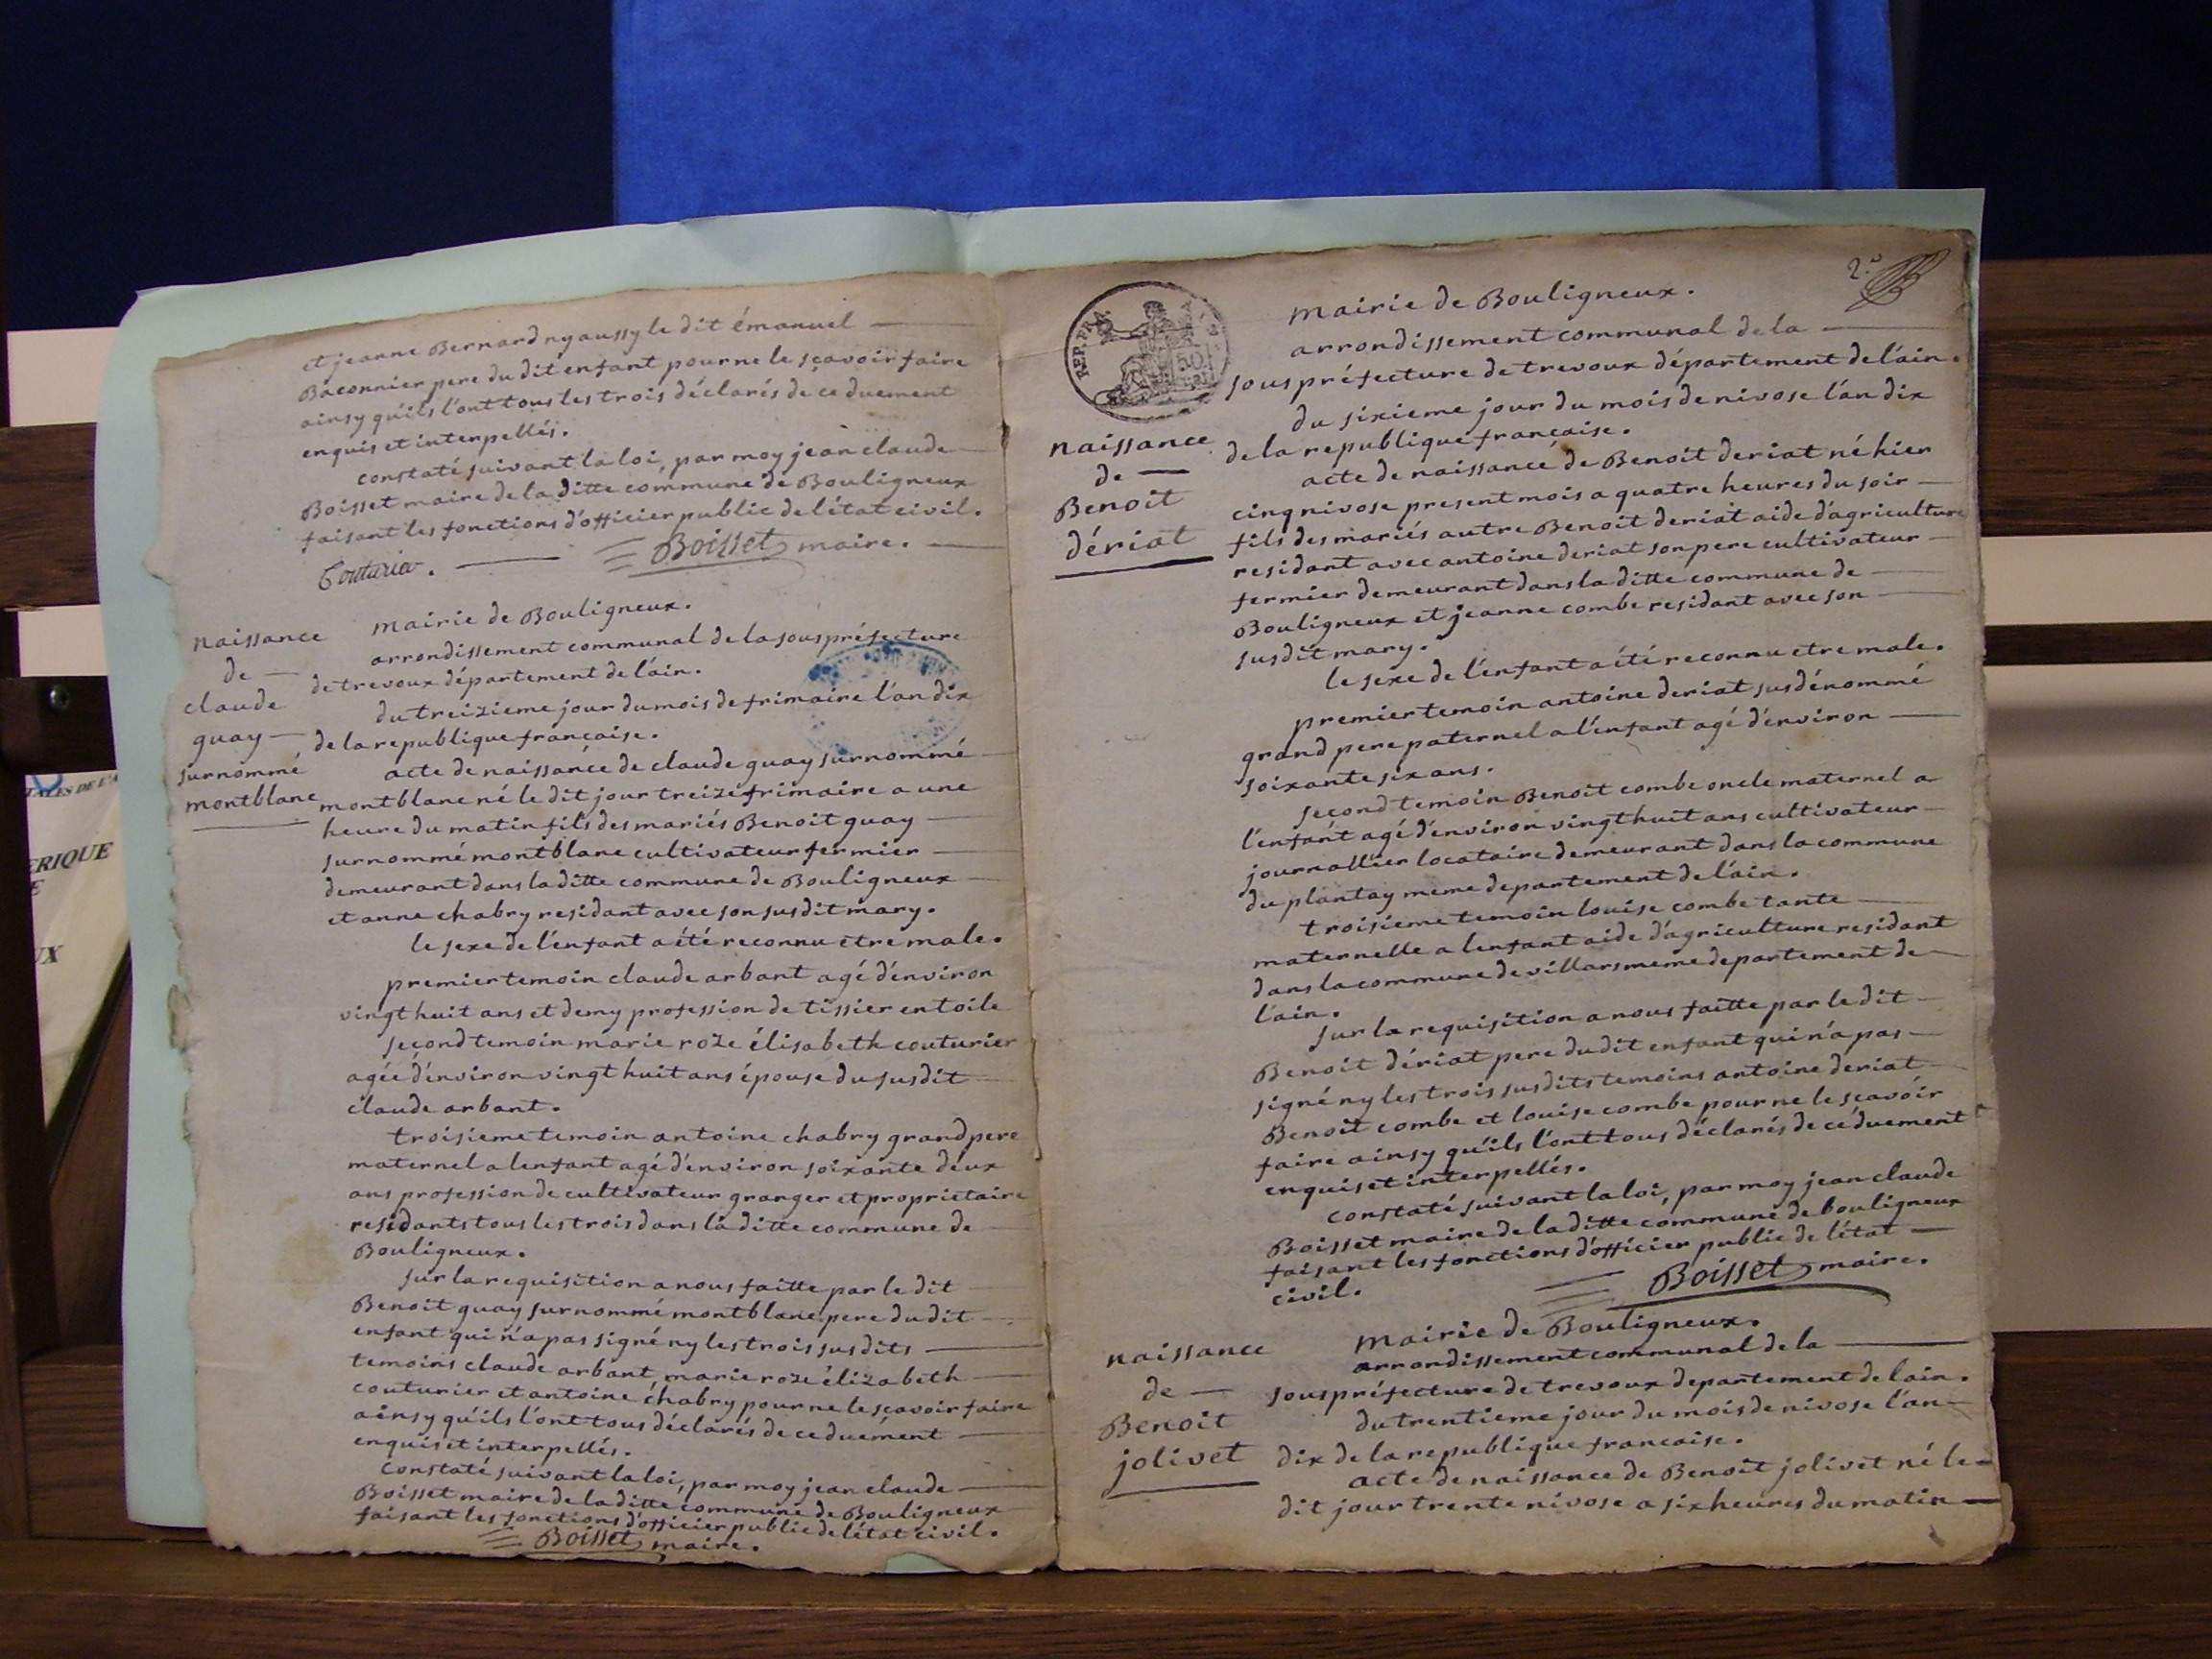 et jeanne Bernard ny aussy le dit émanuel
Baconnier pere du dit enfant pour ne le sçavoir faire
ainsy qu'ils l'ont tous les trois déclarés de ce duement
enquis et interpellés.
constaté suivant la loi, par moy jean claude
Boisset maire de la ditte commune de Bouligneux
faisant les fonctions d'officier public de l'état civil.
Couturier. Boisset maire.
naissance
de
claude
guay
surnommé
montblanc
mairie de Bouligneux.
arrondissement communal de la sous préfecture
de trevoux département de l'ain.
du treizieme jour du mois de frimaire l'an dix
de la republique française.
acte de naissance de claude guay surnommé
montblanc né le dit jour treize frimaire a une
heure du matin fils des mariés Benoit guay
surnommé montblanc cultivateur fermier
demeurant dans la ditte commune de Bouligneux
et anne chabry residant avec son susdit mary.
le sexe de l'enfant a été reconnu etre male.
premier temoin claude arbant agé d'environ
vingt huit ans et demy profession de tissier en toile
second temoin marie roze élisabeth couturier
agée d'environ vingt huit ans épouse du susdit
claude arbant.
troisieme temoin antoine chabry grand pere
maternel a l'enfant agé d'environ soixante deux
ans profession de cultivateur granger et proprietaire
residants tous les trois dans la ditte commune de
Bouligneux.
sur la requisition a nous faitte par le dit
Benoit guay surnommé montblanc pere du dit
enfant qui n'a pas signé ny les trois susdits
temoins claude arbant marie roze élizabeth
couturier et antoine chabry pour ne le sçavoir faire
ainsy qu'ils l'ont tous déclarés de ce duement
enquis et interpellés.
constaté suivant la loi, par moy jean claude
Boisset maire de la ditte commune de Bouligneux
faisant les fonctions d'officier public de l'état civil.
Boisset maire.
2.e
REP. FRA.
50
mairie de Bouligneux.
arrondissement communal de la
sous préfecture de trevoux département de l'ain.
du sixieme jour du mois de nivose l'an dix
de la republique française.
naissance
de
Benoit
dériat
acte de naissance de Benoit deriat né hier
cinq nivose present mois a quatre heures du soir
fils des mariés autre Benoit deriat aide d'agriculture
residant avec antoine deriat son pere cultivateur
fermier demeurant dans la ditte commune de
Bouligneux et jeanne combe residant avec son
susdit mary.
le sexe de l'enfant a été reconnu etre male.
premier temoin antoine deriat susdénommé
grand pere paternel a l'enfant agé d'environ
soixante six ans.
second temoin Benoit combe oncle maternel a
l'enfant agé d'environ vingt huit ans cultivateur
journallier locataire demeurant dans la commune
du plantay meme departement de l'ain.
troisieme temoin louise combe tante
maternelle a l'enfant aide d'agriculture residant
dans la commune de villars meme departement de
l'ain.
sur la requisition a nous faitte par le dit
Benoit dériat pere du dit enfant qui n'a pas
signé ny les trois susdits temoins antoine deriat
Benoit combe et louise combe pour ne le sçavoir
faire ainsy qu'ils l'ont tous déclarés de ce duement
enquis et interpellés.
constaté suivant la loi, par moy jean claude
Boisset maire de la ditte commune de bouligneux
faisant les fonctions d'officier public de l'état
civil. Boisset maire.
naissance
de
Benoit
jolivet
mairie de Bouligneux.
arrondissement communal de la
sous préfecture de trevoux departement de l'ain.
du trentieme jour du mois de nivose l'an
dix de la republique francaise.
acte de naissance de Benoit jolivet né le
dit jour trente nivose a six heures du matin
ERIQUE
E
UX